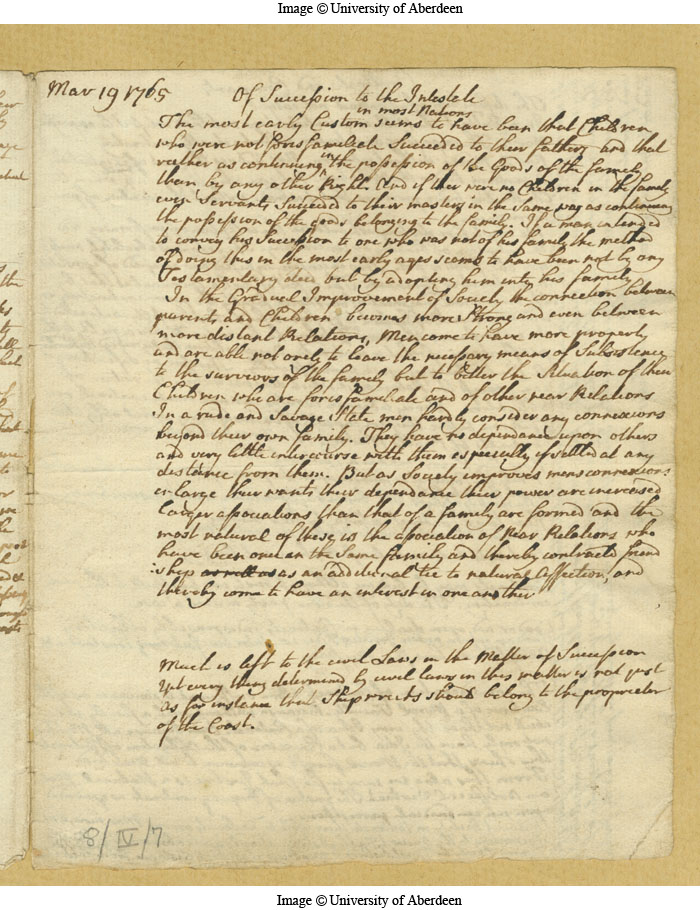 Image © University of Aberdeen
Mar 19 1765
Of Succession to the Intestate
in most Nations
The most early Custom seems to have been that Children
who were not forisfamiliate Succeeded to their father, and that
rather as continuing in the possession of the Goods of the family
than by any other Right. And if ther were no Children in the family
even Servants Succeeded to their masters in the same way as continuing
the possession of the Goods belonging to the family. If a man intended
to convey his Succession to one who was not of his family the method
of doing this in the most early ages seems to have been not by any
Testamentary deed but by adopting him into his family
In the Gradual Improvement of Society the connection between
parents and Children becomes more Strong and even between
more distant Relations, Men come to have more property
and are able not onely to leave the necessary means of Subsistence
to the survivors of the family but to better the Situation of their
Children who are forisfamiliate and of other near Relations
In a rude and Savage State men hardly consider any connexions
beyond their own family. They have no dependance upon others
and very little intercourse with them especially if settled at any
distance from them. But as Society improves mens connexions
enlarge their wants their dependance their power are increased
Larger associations than that of a family are formed and the
most natural of these is the association of Near Relations who
have been once in the Same family and thereby contracted friend
:ship as well as as an additional tie to natural Affection, and
thereby come to have an interest in one another
Much is left to the civil Laws in the Matter of Succession
Yet every thing determined by civil laws in this matter is not just
as for instance that Shipwrecks should belong to the proprietor
of the Coast.
8/IV/7
Image © University of Aberdeen